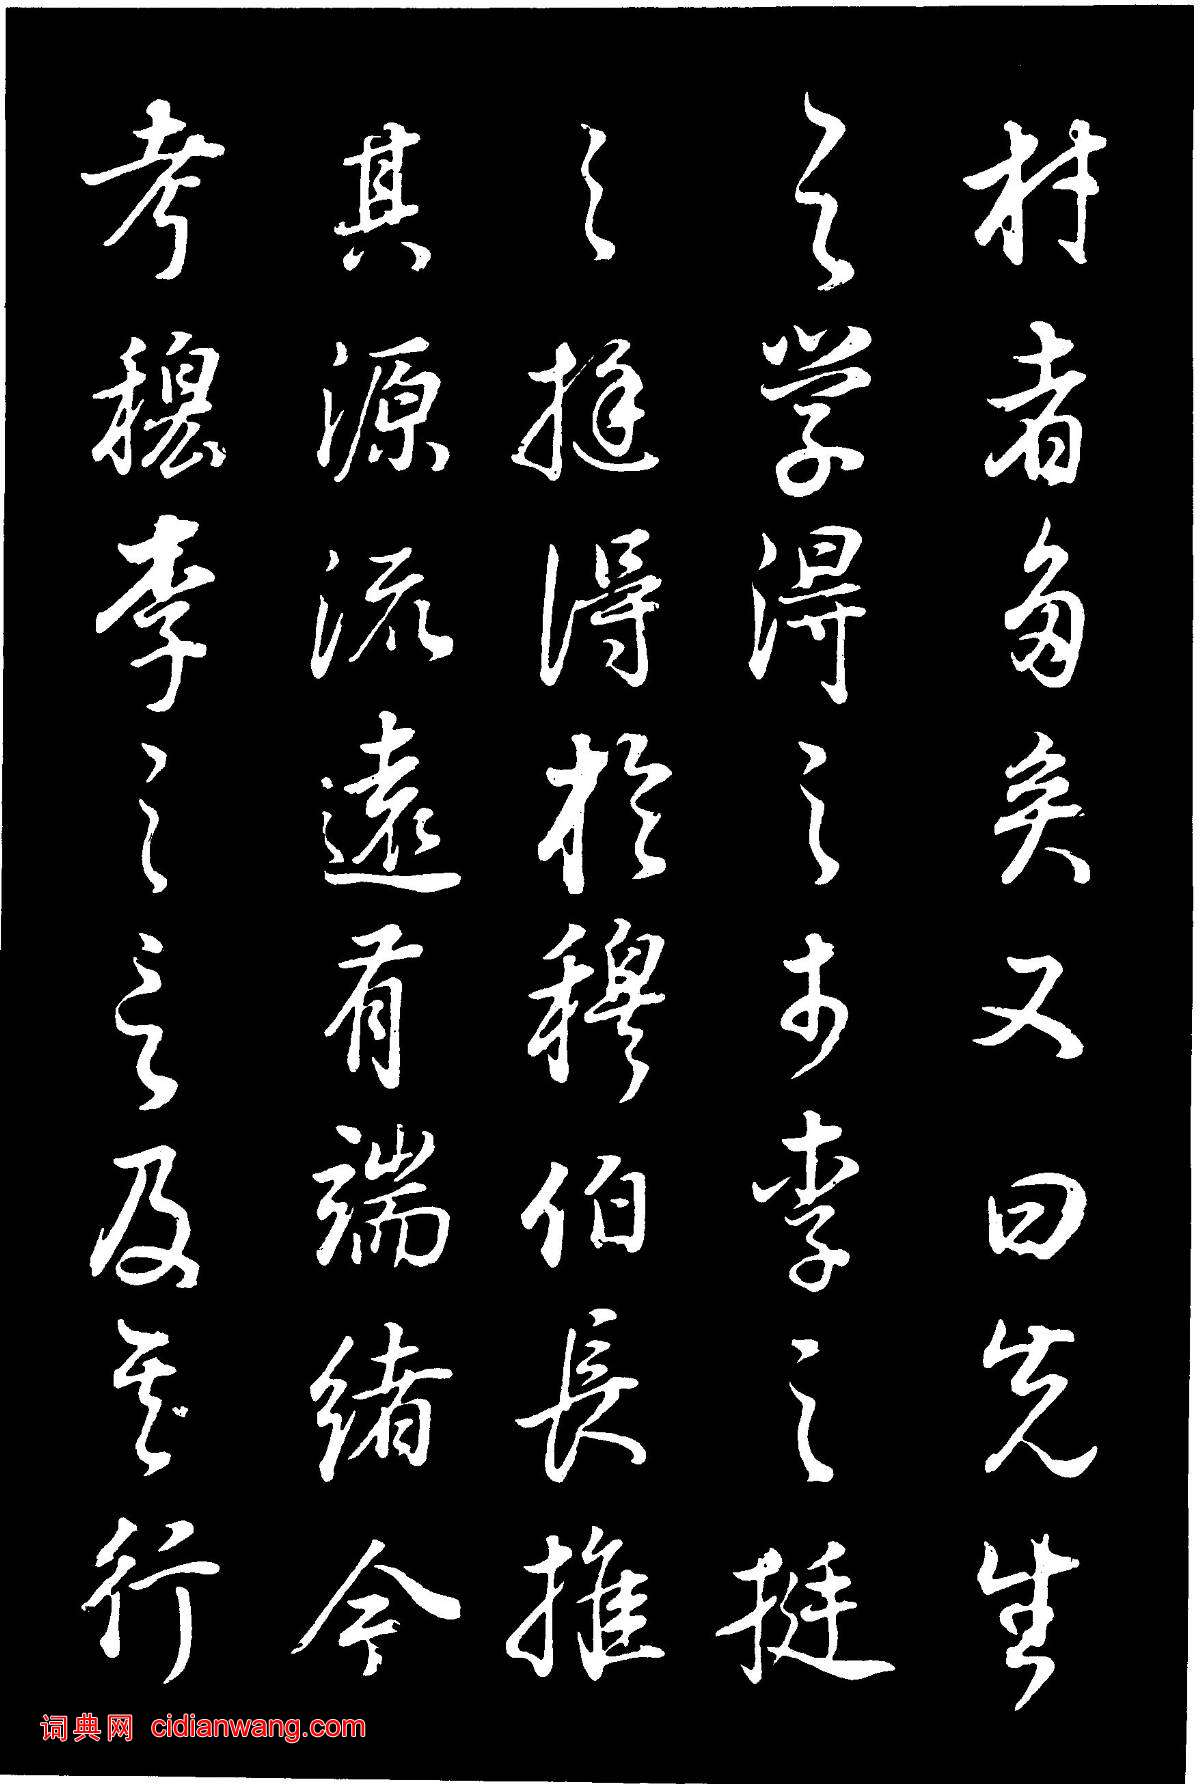 材者多矣又曰先生
之學得之於李之挺
之挺得於穆伯長推
其源流遠有端緒今
考穆李之言及其行
词典网 cidianwang.com